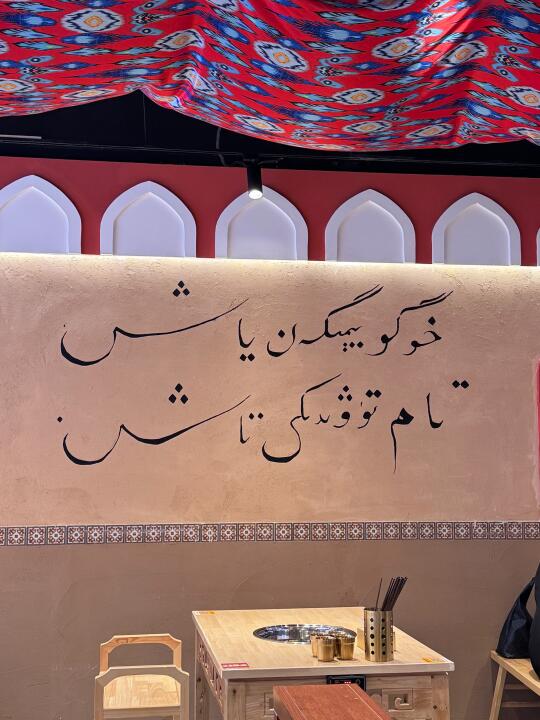 خوگو يېمىگەن ياش
تام تۈۋىدىكى تاش